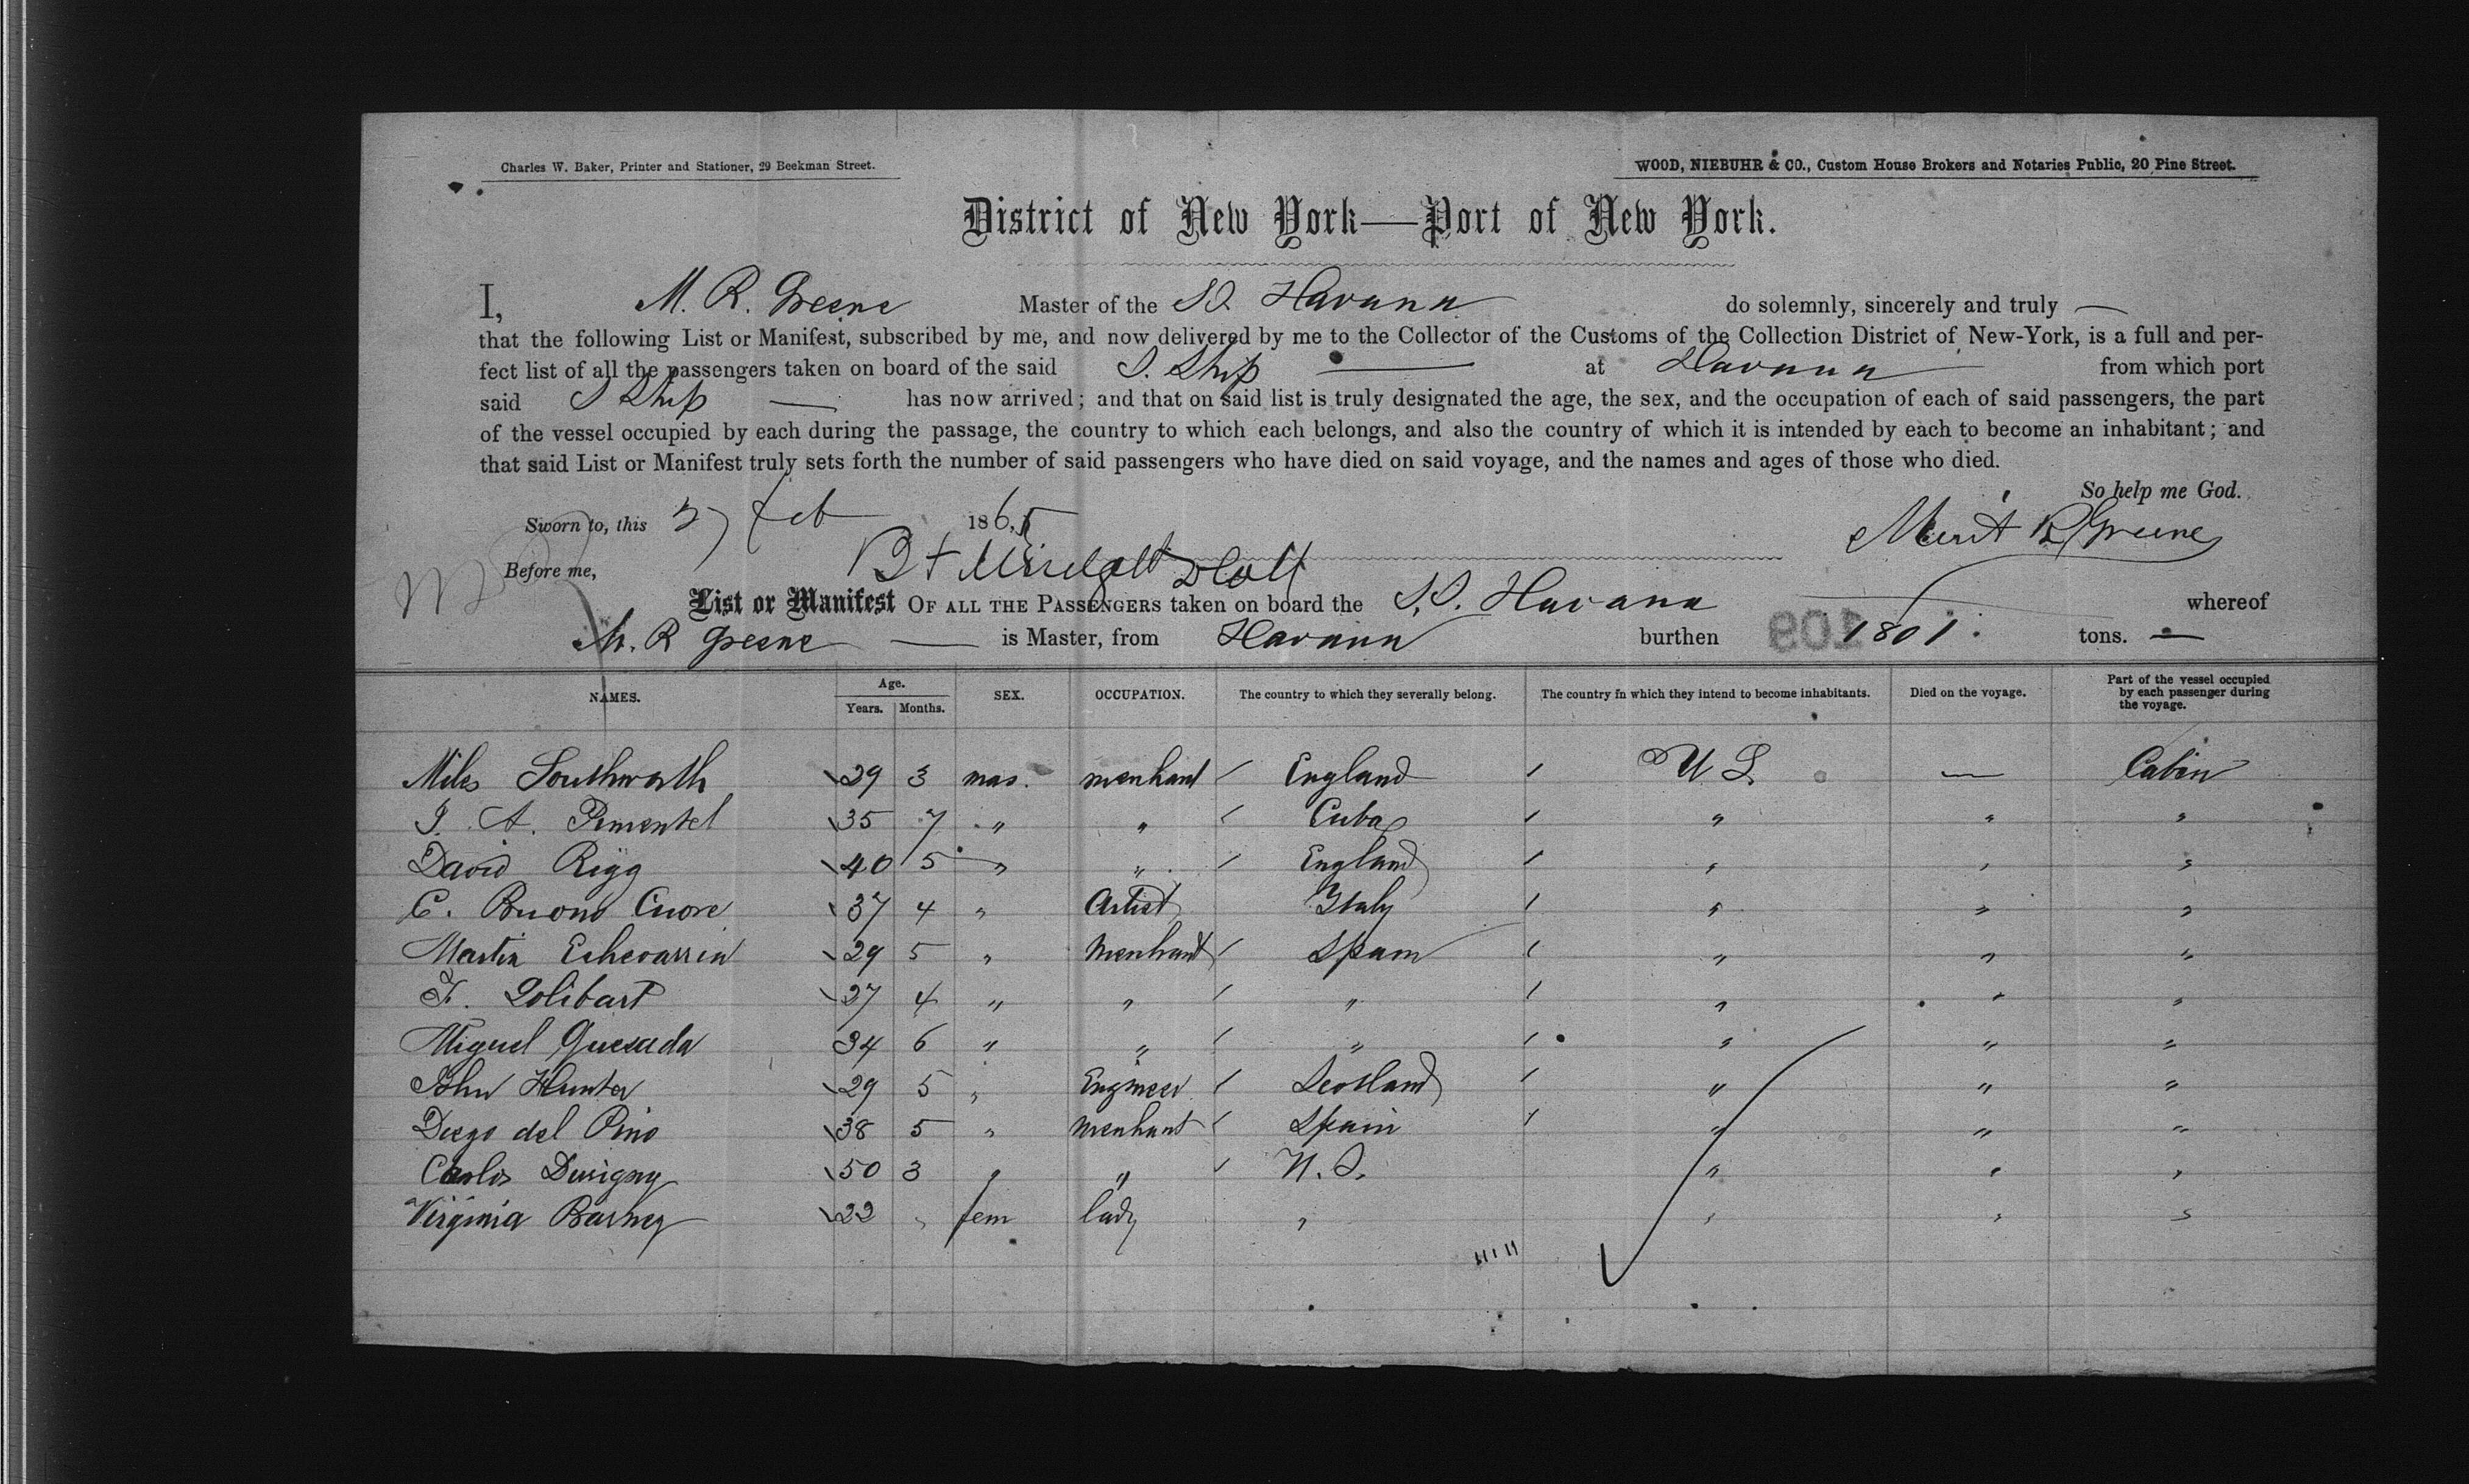 Charles W. Baker, Printer and Stationer, 29 Beekman Street.
WOOD, NIEBUHR & CO., Custom House Brokers and Notaries Public, 20 Pine Street.
District of New York—Port of New York.
I, M. R. Greene Master of the SS. Havana do solemnly, sincerely and truly —
that the following List or Manifest, subscribed by me, and now delivered by me to the Collector of the Customs of the Collection District of New-York, is a full and per-
fect list of all the passengers taken on board of the said S. Ship — at Havana from which port
said S Ship — has now arrived; and that on said list is truly designated the age, the sex, and the occupation of each of said passengers, the part
of the vessel occupied by each during the passage, the country to which each belongs, and also the country of which it is intended by each to become an inhabitant; and
that said List or Manifest truly sets forth the number of said passengers who have died on said voyage, and the names and ages of those who died.
So help me God.
Sworn to, this Feb 1865 Merit R Greene
Before me,
List or Manifest OF ALL THE PASSENGERS taken on board the S.S. Havana whereof
M. R Greene — is Master, from Havana burthen 1801. tons. —
NAMES. Age. Years. Months. SEX. OCCUPATION. The country to which they severally belong. The country in which they intend to become inhabitants. Died on the voyage. Part of the vessel occupied by each passenger during the voyage.
Miles Southworth 29 3 mas. merchant England U S. — Cabin
J. A. Pimentel 35 7 " " Cuba " " "
David Rigg 40 5 " " England " " "
C. Buono Cuore 37 4 " Artist Italy " " "
Martin Echevarria 29 5 " Merchant Spain " " "
F. Solibart 27 4 " " " " " "
Miguel Quesada 34 6 " " " " " "
John Hunter 29 5 " Engineer Scotland " " "
Diego del Pino 38 5 " Merchant Spain " " "
Carlos 50 3 " " U. S. " " "
Virginia Barney 22 " fem lady " " " "